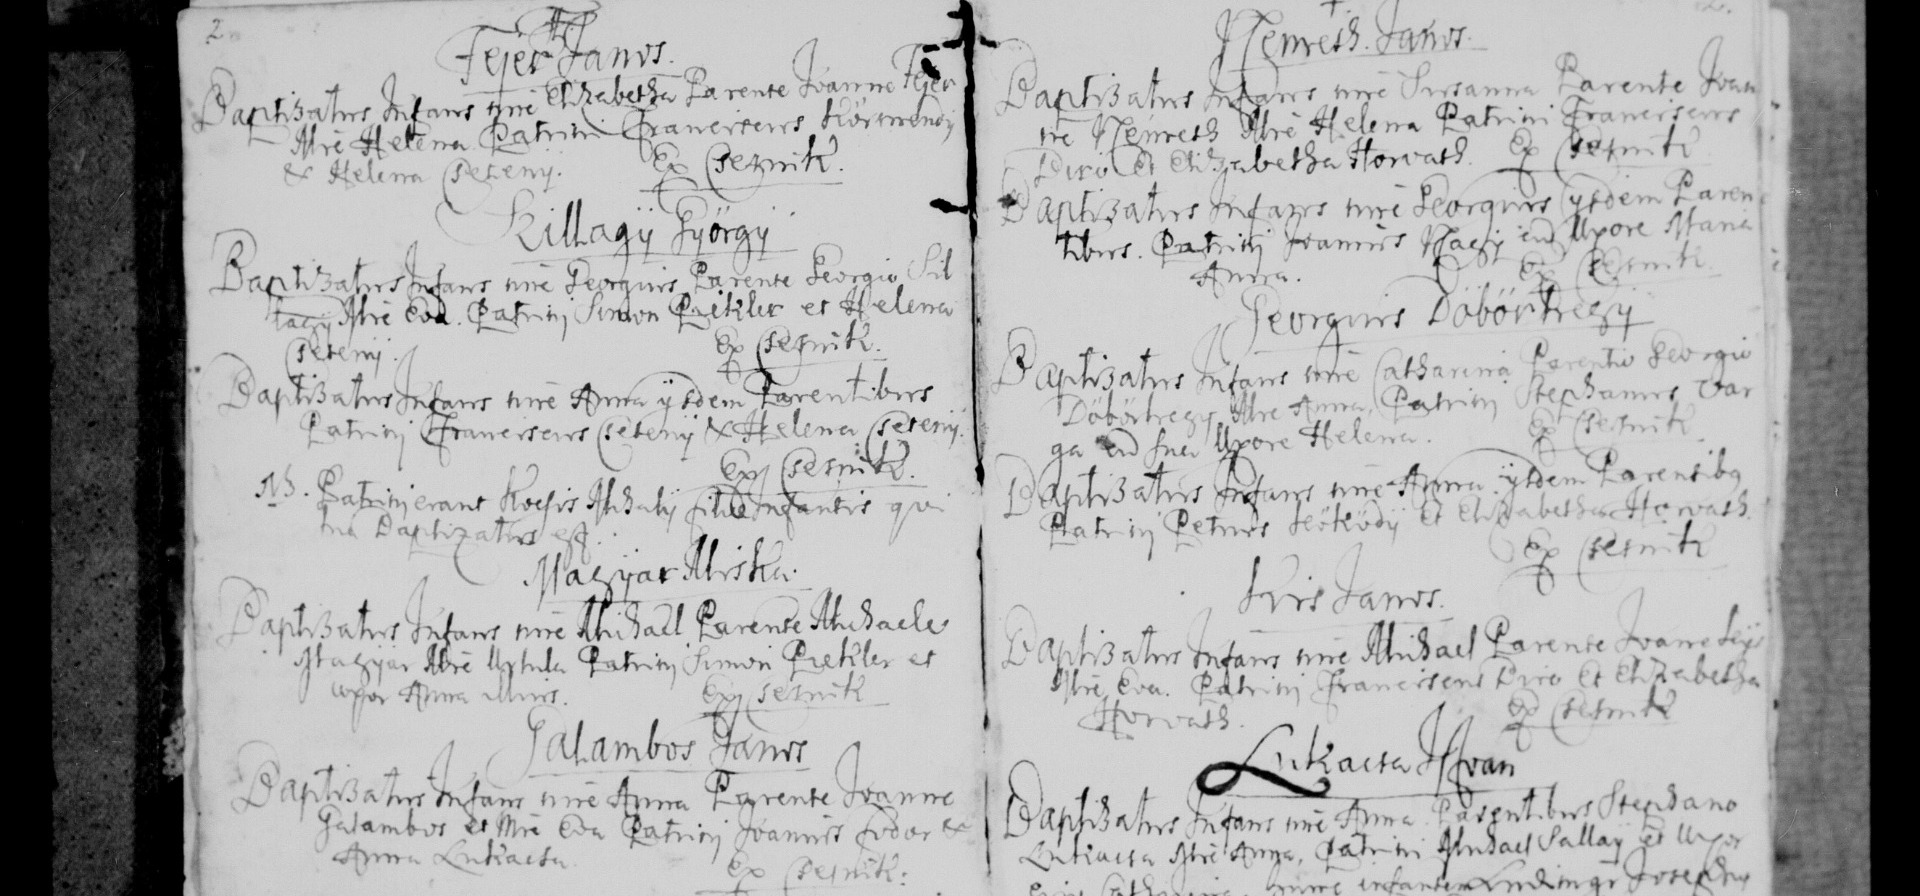 2
Fejer Janos.
Baptizatus Infans nre Elizabetha Parente Ioanne Fejer
Mre Helena Patrini Franciscus Körmendy
& Helena Cseteny. Ex Csesznik.
Killagÿ Györgÿ
Baptizatus Infans nre Georgius Parente Georgio Kil
lagy Mre Eva. Patrinj Simon Piekler et Helena
Csetenij. Ex Csesznik.
Baptizatus Infans nre Anna ÿsdem Parentibus
Patrinj Franciscus Csetenij & Helena Csetenij.
Ex Csesznik.
NB. Patrinj erant Mihaly Infantis qui
Baptizatus est.
Magÿar Miska.
Baptizatus Infans nre Michael Parente Michaele
Magÿar Mre Patrinj Simon Piekler et
uxor Anna illius. Ex Csesznik
Galambos Janos
Baptizatus Infans nre Anna Parente Ioanne
Galambos et Mre Eva Patrinj Ioannis Fodor &
Anna Lukacsa Ex Csesznik.
2.
Nemeth Janos.
Baptizatus Infans nre Susanna Parente Ioan
ne Nemeth Mre Helena Patrini Franciscus
Biro Et Elizabetha Horvath. Ex Csesznik.
Baptizatus Infans nre Georgius ÿsdem Paren
tibus. Patrinj Ioannis Nagÿ cu Uxore Maria
Anna. Ex Csesznik.
Georgius Döbörhegÿ
Baptizatus Infans nre Catharina Parente Georgio
Döbörhegy Mre Anna, Patrinj Stephanus Var
ga cu sua Uxore Helena. Ex Csesznik
Baptizatus Infans nre Anna ÿsdem Parentibq
Patrinj Petrus Et Elizabetha Horvath.
Ex Csesznik
Kis Janos.
Baptizatus Infans nre Michael Parente Ioanne
Mre Eva. Patrinj Franciscus Biro Et Elizabetha
Horvath. Ex Csesznik
Lukacsa Istvan
Baptizatus Infans nre Anna Parentibus Stephano
Lukacsa Mre Anna, Patrini Michael Sallaÿ et Uxor
Catharina. infantem Josephus